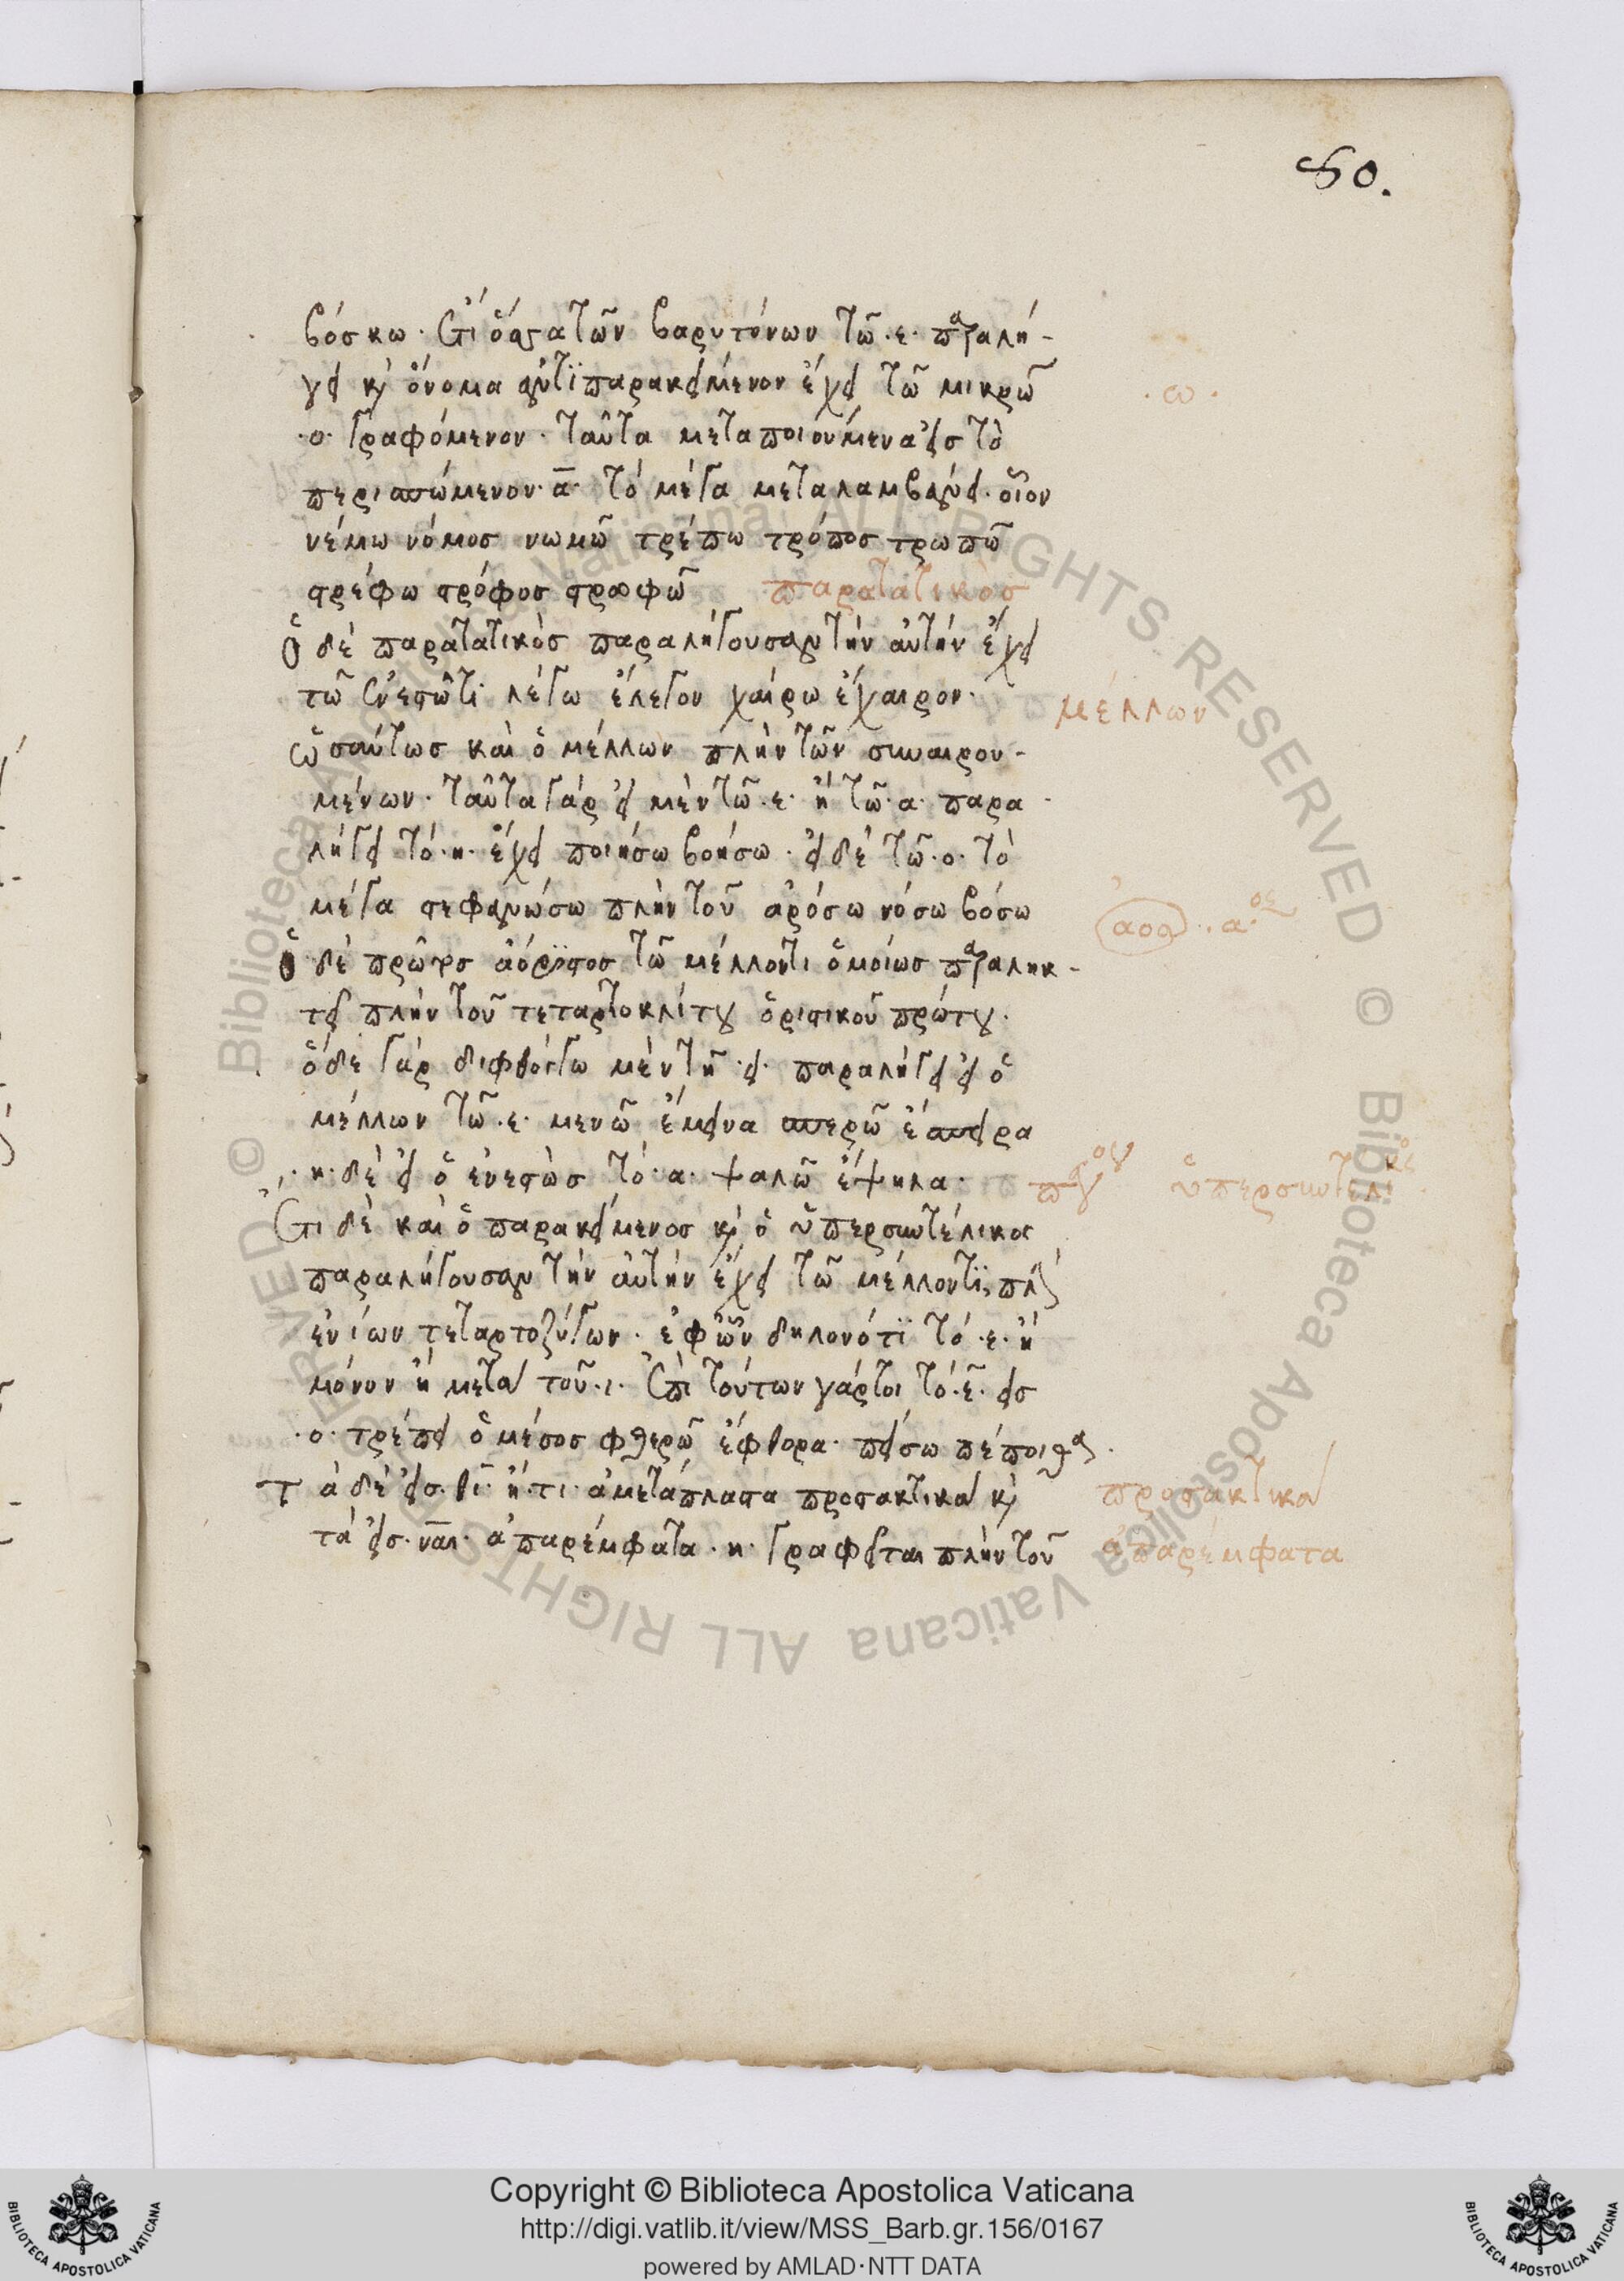 80.
βόσκω· ἔτι ὅσα τῶν βαρυτόνων τῶ ·ε· παραλή-
γει κ̀ ὄνομα ἀντϊπαρακείμενον ἔχει τῶ μικρῶ
·ω·
·ο· γραφόμενον· ταῦτα μεταποιούμενα εἰσ τὸ
περισπώμενον· ᾱ· τὸ μέγα μεταλαμβάνει· οἷον
νέμω νόμοσ νωμῶ τρέπω τρόποσ τρωπῶ
στρέφω στρόφοσ στρωφῶ παρατατικὸσ
ὁ δὲ παρατατικὸσ παραλήγουσαν τὴν αὐτὴν ἔχει
τῶ ἐνεστῶτι λέγω ἔλεγον χαίρω ἔχαιρον·
μέλλων
ὡσαύτωσ καὶ ὁ μέλλων πλὴν τῶν συναιρου-
μένων· ταῦτα γάρ εἰ μὲν τῶ ·ε· ἢ τῶ ·α· παρα
λήγει τὸ ·η· ἔχει ποιήσω βοήσω· εἰ δὲ τῶ ·ο· τὸ
μέγα στεφανώσω πλὴν τοῦ ἀρόσω νόσω βόσω
αορ ·α·ος
ὁ δὲ πρῶτοσ ἀόρϊστοσ τῶ μέλλοντι ὁμοίωσ παραληκ-
τεῖ πλὴν τοῦ τεταρτοκλίτου ὁριστικοῦ πρώτου·
ὅδε γάρ διφθόγγω μὲν τῆ ·ει· παραλήγει εἰ ὁ
μέλλων τῶ ·ε· μενῶ ἔμεινα σπερῶ ἔσπειρα
·η· δὲ εἰ ὁ ἐνεστὼσ τὸ ·α· ψαλῶ ἔψηλα·
ὑπερσυντελικὸς
Ἔτι δὲ καὶ ὁ παρακείμενοσ κ̀ ὁ ὑπερσυντέλικος
παραλήγουσαν τὴν αὐτὴν ἔχει τῶ μέλλοντϊ, πλὴν
ἐνίων τεταρτοζύγων· ἐφ ὧν δηλονότϊ τὸ ·ε· ἢ
μόνον ἢ μετὰ τοῦ ·ι· Ἐπὶ τούτων γάρτοι τὸ ·ε· εἰσ
·ο· τρέπει ὁ μέσοσ φθερῶ ἔφθορα· πείσω πέποιθα·
Τὰ δὲ εἰσ ·θι· ἢ ·τι· ἀμετάπλαστα προστακτικὰ κ̀
προστακτικὰ
τὰ εἰσ ·ναι· ἀπαρέμφατα ·η· γράφεται πλὴν τοῦ
ἀπαρέμφατα
© Biblioteca Apostolica Vaticana ALL RIGHTS RESERVED
© Biblioteca Apostolica Vaticana ALL RIGHTS RESERVED
Copyright © Biblioteca Apostolica Vaticana
http://digi.vatlib.it/view/MSS_Barb.gr.156/0167
powered by AMLAD·NTT DATA
BIBLIOTECA APOSTOLICA VATICANA
BIBLIOTECA APOSTOLICA VATICANA